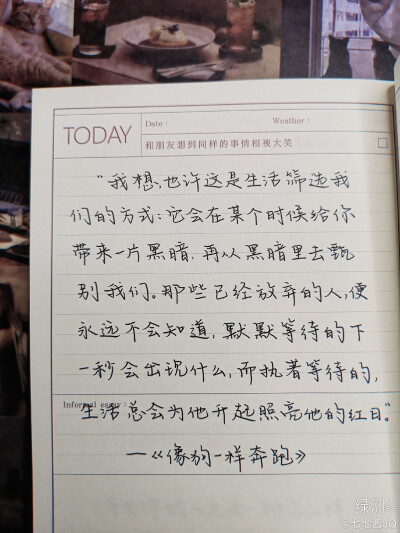 TODAY
Date :
Weather :
和朋友想到同样的事情相视大笑
"我想,也许这是生活筛选我
们的方式:它会在某个时候给你
带来一片黑暗,再从黑暗里去甄
别我们。那些已经放弃的人,便
永远不会知道,默默等待的下
一秒会出现什么,而执着等待的,
Informal essay :
生活总会为他升起照亮他的红日。"
—《像狗一样奔跑》
绿洲
@七七茜JQ